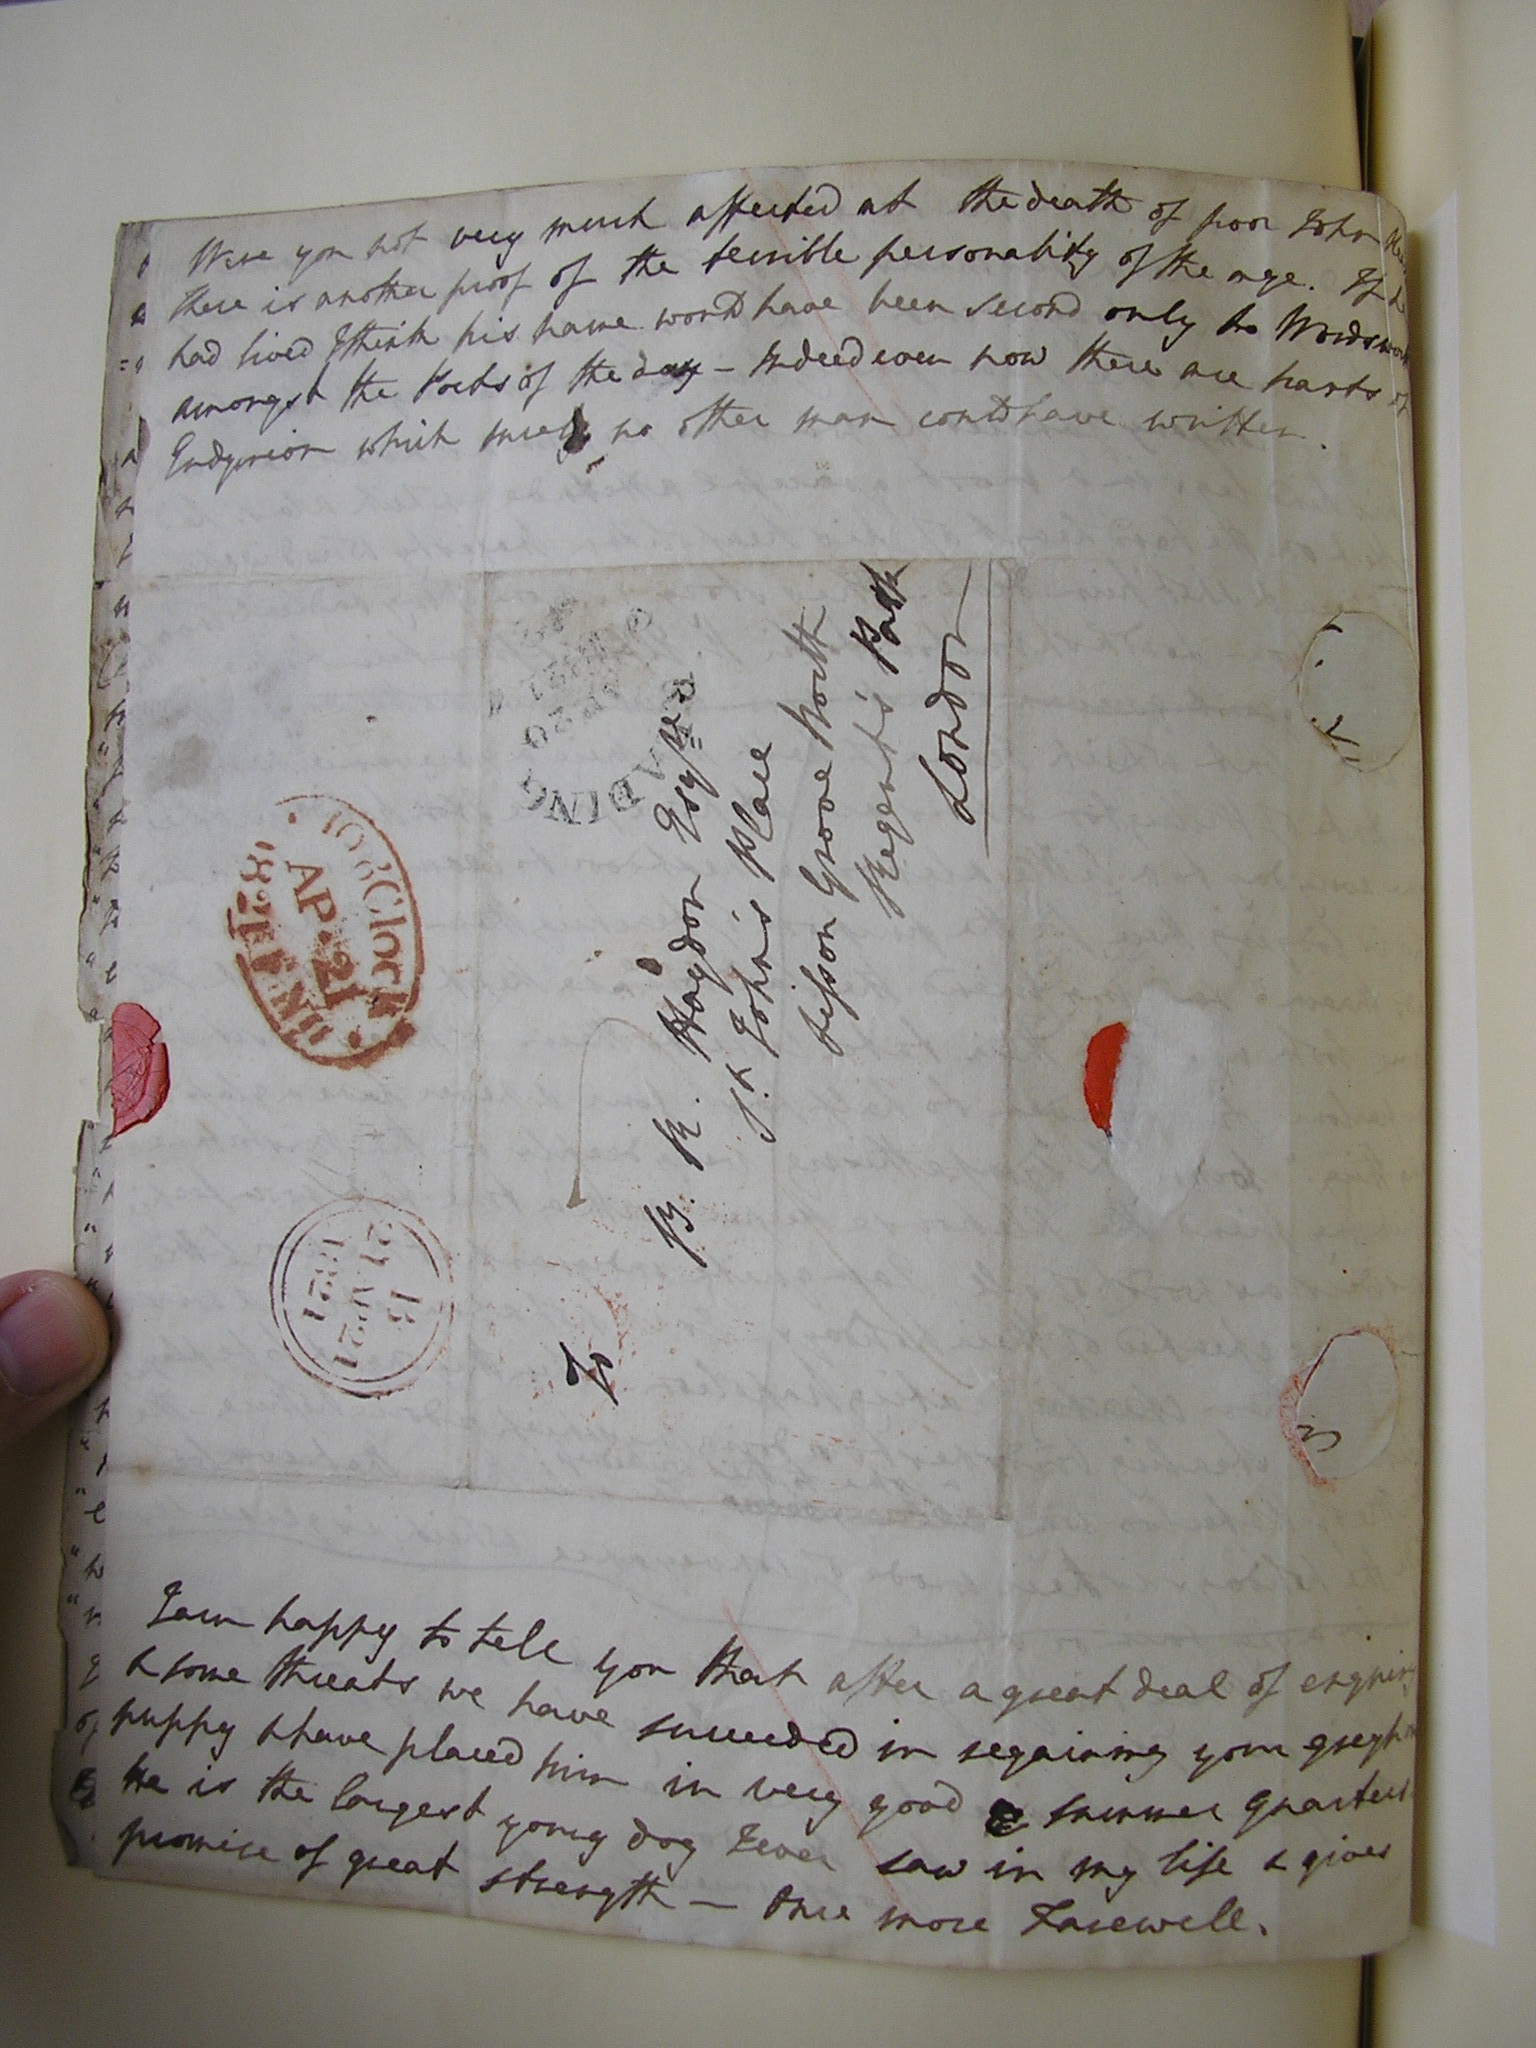 Were you not very much affected at the death of poor John
there is another proof of the terrible personality of the age. If he
had lived I think his name would have been second only to Wordsworth
amongst the Poets of the day – Indeed even now there are parts of
Endymion which surely no other man could have written.
READING
10 o'Clock
AP. 21
1821
B
21 AP 21
1821
To
B. R. Haydon Esqre
St. John's Place
Lisson Grove North
Regent's Park
London
I am happy to tell you that after a great deal of enquiry
& some threats we have succeeded in regaining your greyhound
puppy & have placed him in very good summer quarters.
He is the largest young dog I ever saw in my life & gives
promise of great strength – Once more Farewell.